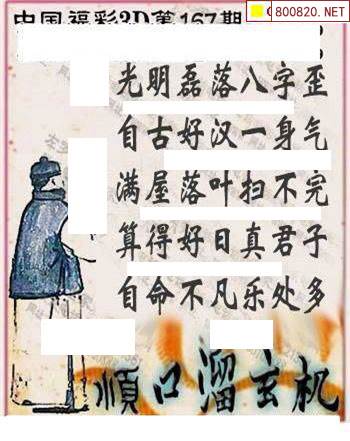 中国福彩3D第167期
800820.NET
光明磊落八字歪
自古好汉一身气
满屋落叶扫不完
算得好日真君子
自命不凡乐处多
順口溜玄机